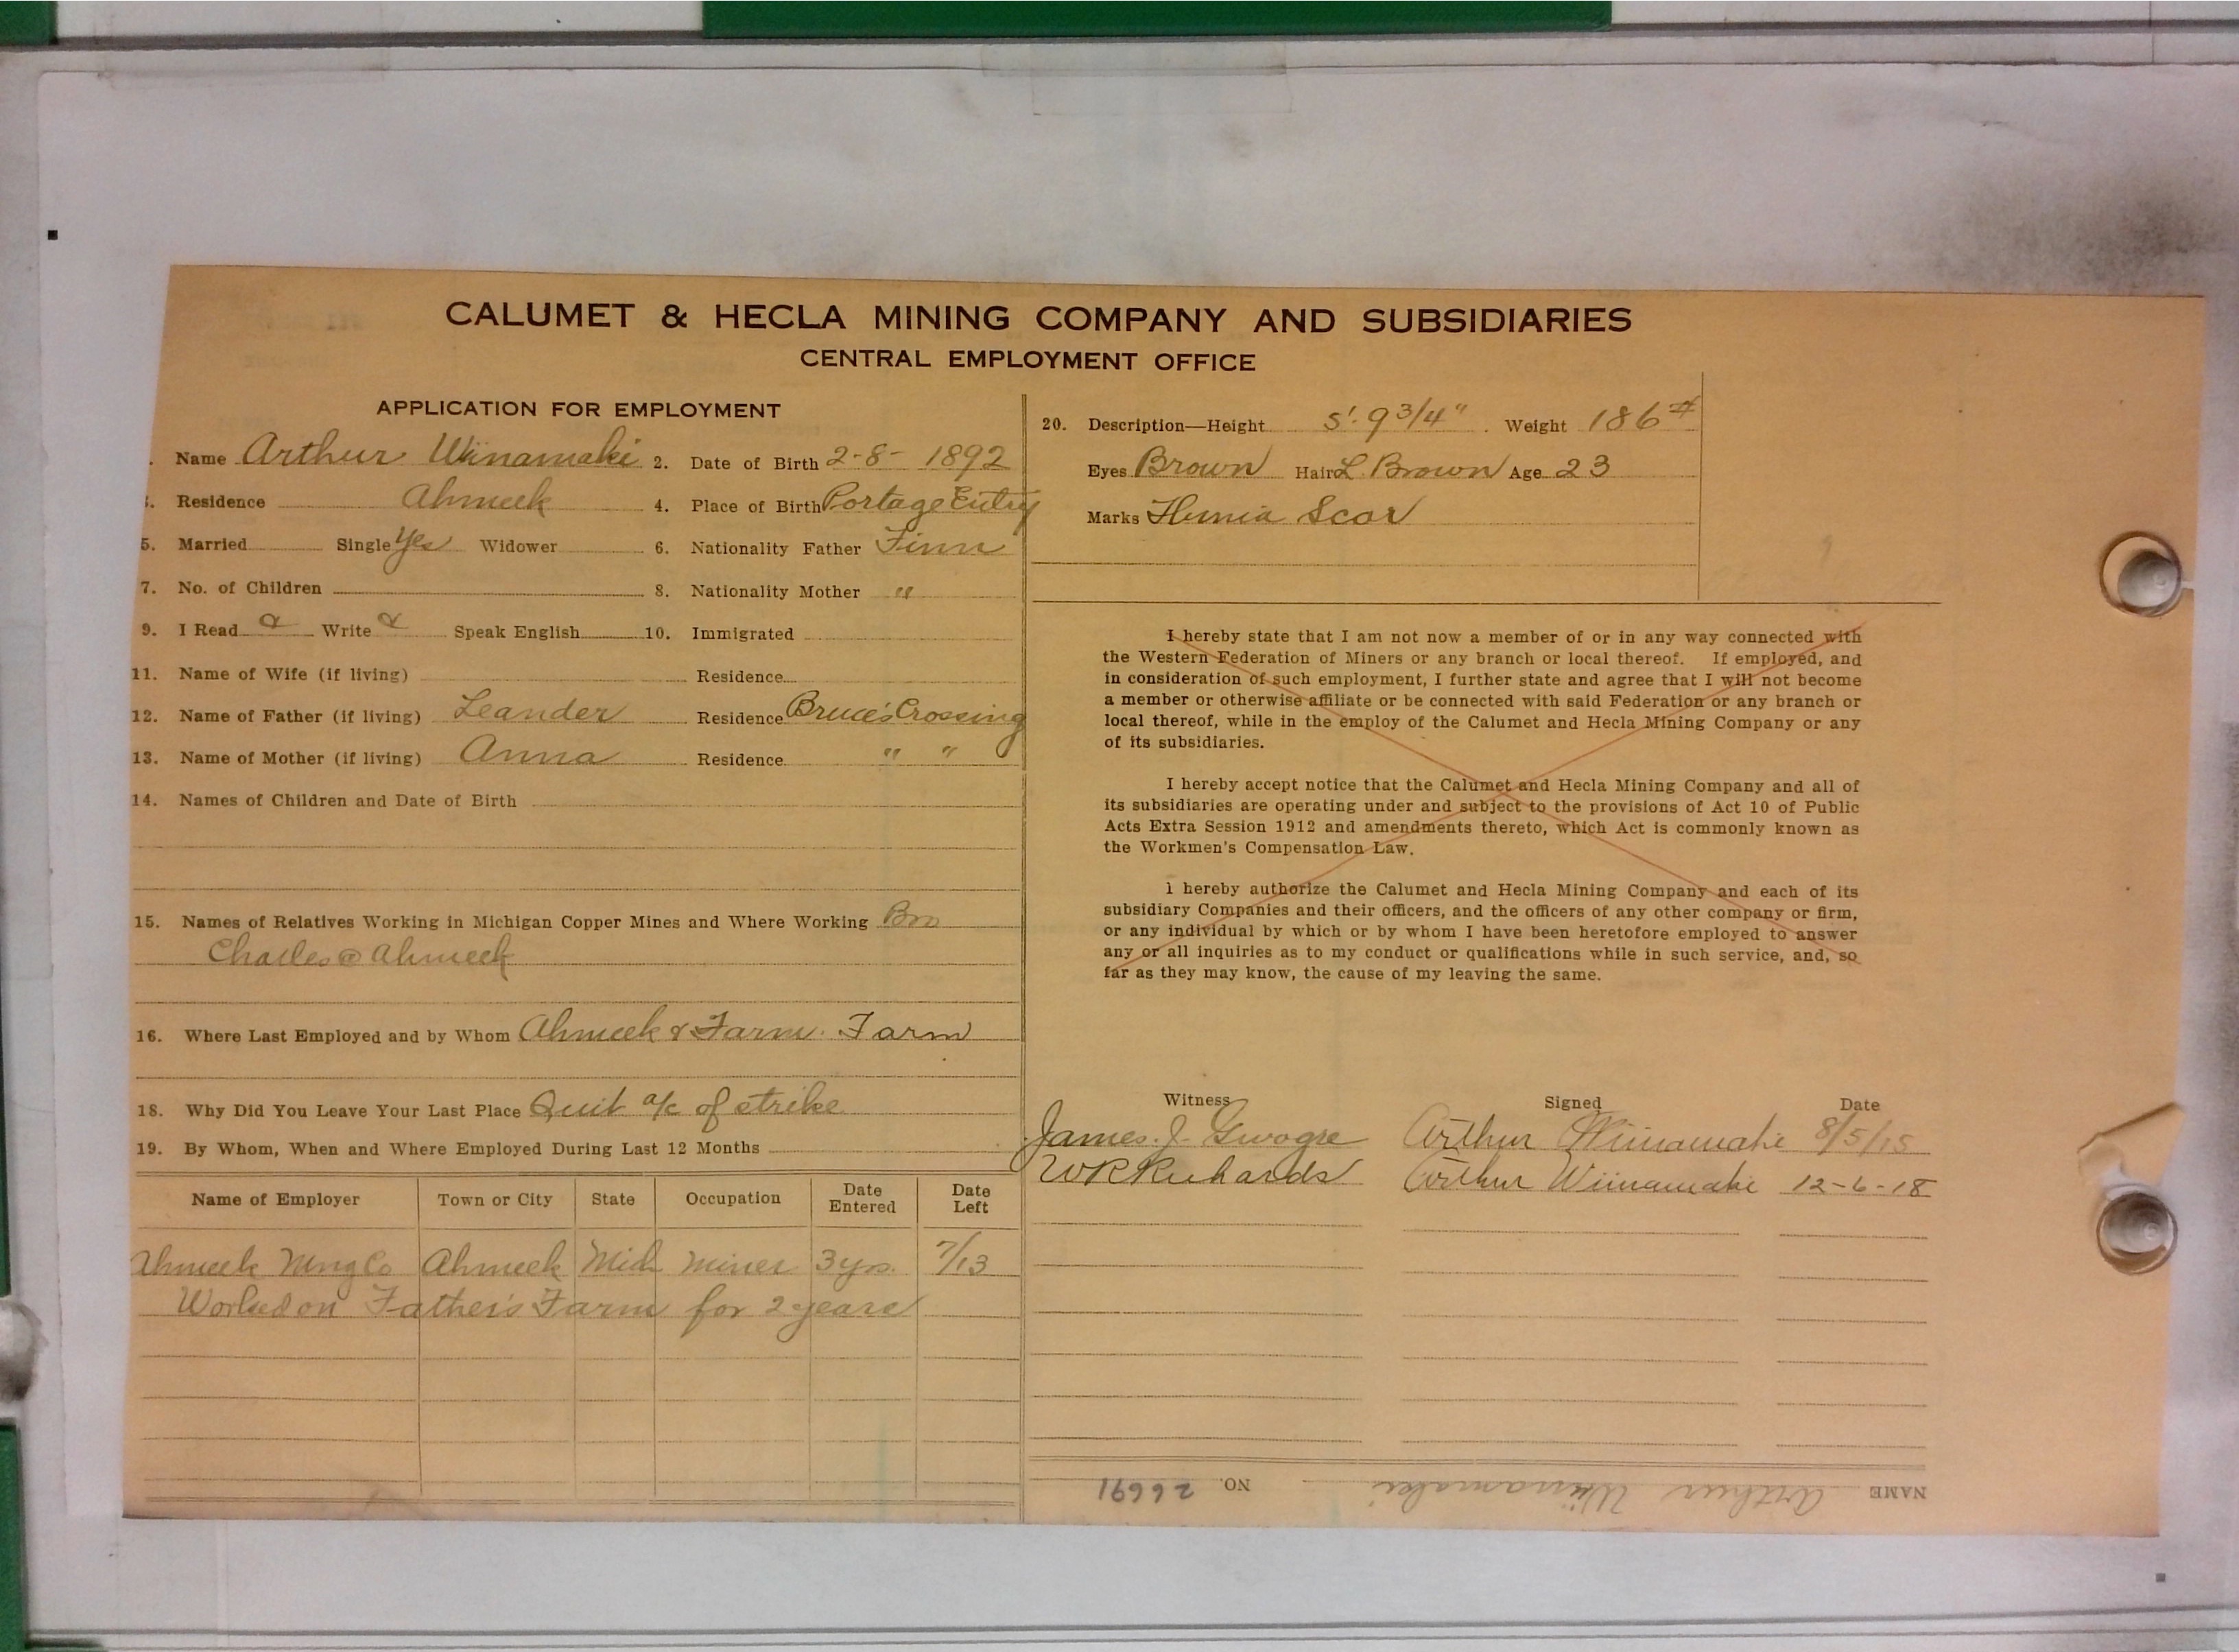 CALUMET & HECLA MINING COMPANY AND SUBSIDIARIES
CENTRAL EMPLOYMENT OFFICE
APPLICATION FOR EMPLOYMENT
. Name Arthur Wiinamaki 2. Date of Birth 2-8- 1892
3. Residence Ahmeek 4. Place of Birth Portage Entry
5. Married Single Yes Widower 6. Nationality Father Finn
7. No. of Children 8. Nationality Mother "
9. I Read & Write & Speak English 10. Immigrated
11. Name of Wife (if living) Residence
12. Name of Father (if living) Leander Residence Bruce's Crossing
13. Name of Mother (if living) Anna Residence " "
14. Names of Children and Date of Birth
15. Names of Relatives Working in Michigan Copper Mines and Where Working Bro
Charles @ Ahmeek
16. Where Last Employed and by Whom Ahmeek & Farm. Farm
18. Why Did You Leave Your Last Place Quit a/c of strike
19. By Whom, When and Where Employed During Last 12 Months
Name of Employer Town or City State Occupation Date Entered Date Left
Ahmeek Mng Co Ahmeek Mich Miner 3 yrs. 7/13
Worked on Father's Farm for 2 years
20. Description—Height 5'. 9 3/4" . Weight 186#
Eyes Brown Hair L. Brown Age 23
Marks Hernia Scar
I hereby state that I am not now a member of or in any way connected with
the Western Federation of Miners or any branch or local thereof. If employed, and
in consideration of such employment, I further state and agree that I will not become
a member or otherwise affiliate or be connected with said Federation or any branch or
local thereof, while in the employ of the Calumet and Hecla Mining Company or any
of its subsidiaries.
I hereby accept notice that the Calumet and Hecla Mining Company and all of
its subsidiaries are operating under and subject to the provisions of Act 10 of Public
Acts Extra Session 1912 and amendments thereto, which Act is commonly known as
the Workmen's Compensation Law.
I hereby authorize the Calumet and Hecla Mining Company and each of its
subsidiary Companies and their officers, and the officers of any other company or firm,
or any individual by which or by whom I have been heretofore employed to answer
any or all inquiries as to my conduct or qualifications while in such service, and, so
far as they may know, the cause of my leaving the same.
Witness Signed Date
James. J. Arthur Wiinamaki 8/5/15
W R Richards Arthur Wiinamaki 12-6-18
NAME Arthur Wiinamaki NO. 26691